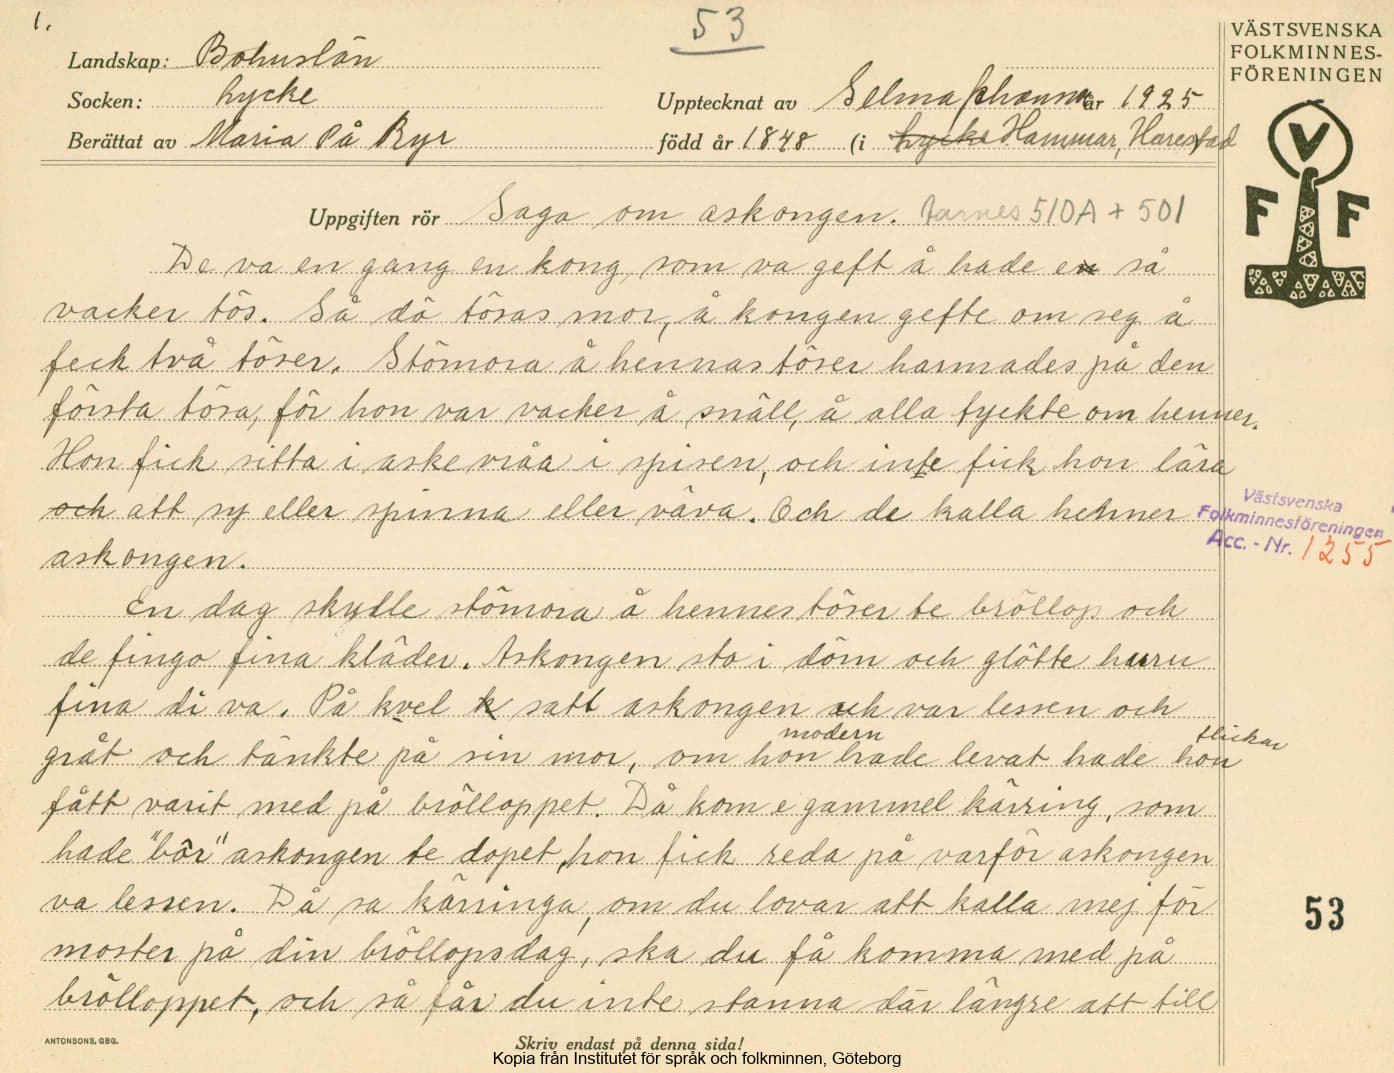 1.
53
VÄSTSVENSKA
FOLKMINNES-
FÖRENINGEN
Landskap: Bohuslän
Socken: Lycke
Upptecknat av Selma Johanna år 1925
Berättat av Maria På Byr
född år 1848 (i Lycke Hammar, Harestad
V
F F
Uppgiften rör Saga om askongen. Aarnes 510A + 501
De va en gang en kong, som va geft å hade en så
vacker tös. Så dö tösas mor, å kongen gefte om seg å
feck två töser. Stömora å hennas töser harmades på den
första tösa, för hon var vacker å snäll, å alla tyckte om henner.
Hon fick sitta i aske vråa i spisen, och inte fick hon lära
och att sy eller spinna eller väva. Och de kalla henner
askongen.
Västsvenska
Folkminnesföreningen
Acc. - Nr. 1255
En dag skylle stömora å hennes töser te bröllop och
de fingo fina kläder. Askongen sto i döm och glötte huru
fina di va. På kvel k satt askongen och var lessen och
gråt och tänkte på sin mor, om hon modern hade levat hade hon flickan
fått varit med på brölloppet. Då kom e gammel kärring, som
hade "bör" askongen te dopet, hon fick reda på varför askongen
va lessen. Då sa kärringa, om du lovar att kalla mej för
moster på din bröllopsdag, ska du få komma med på
brölloppet, och så får du inte stanna där längre att till
53
ANTONSONS, GBG.
Skriv endast på denna sida!
Kopia från Institutet för språk och folkminnen, Göteborg